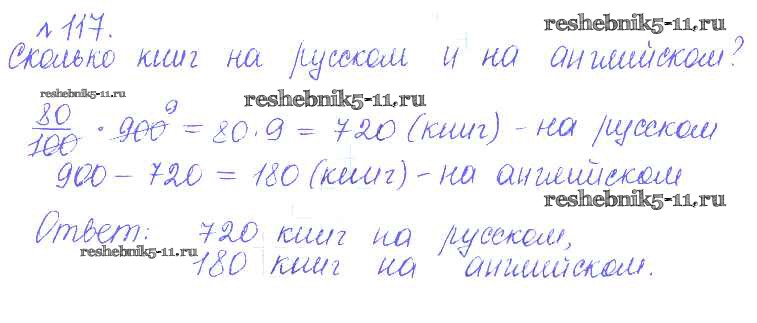 № 117.
reshebnik5-11.ru
Сколько книг на русском и на английском?
reshebnik5-11.ru
reshebnik5-11.ru
80/100 · 900 9 = 80·9 = 720 (книг) - на русском
900 - 720 = 180 (книг) - на английском
reshebnik5-11.ru
Ответ: 720 книг на русском,
reshebnik5-11.ru
180 книг на английском.